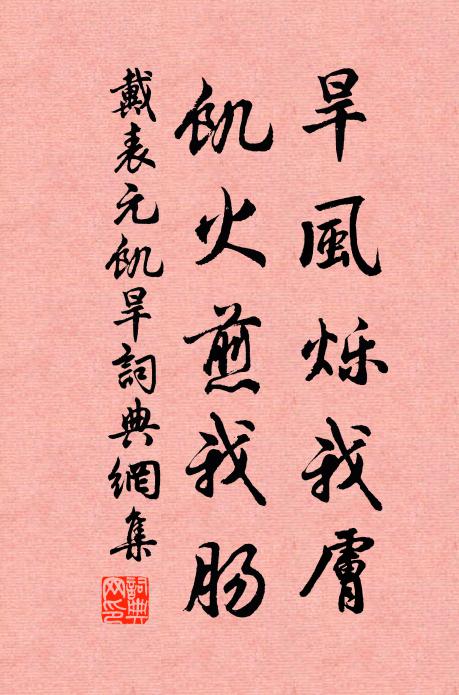 旱風烁我膚
飢火煎我肠
戴表元飢旱詞典網集
詞典網印